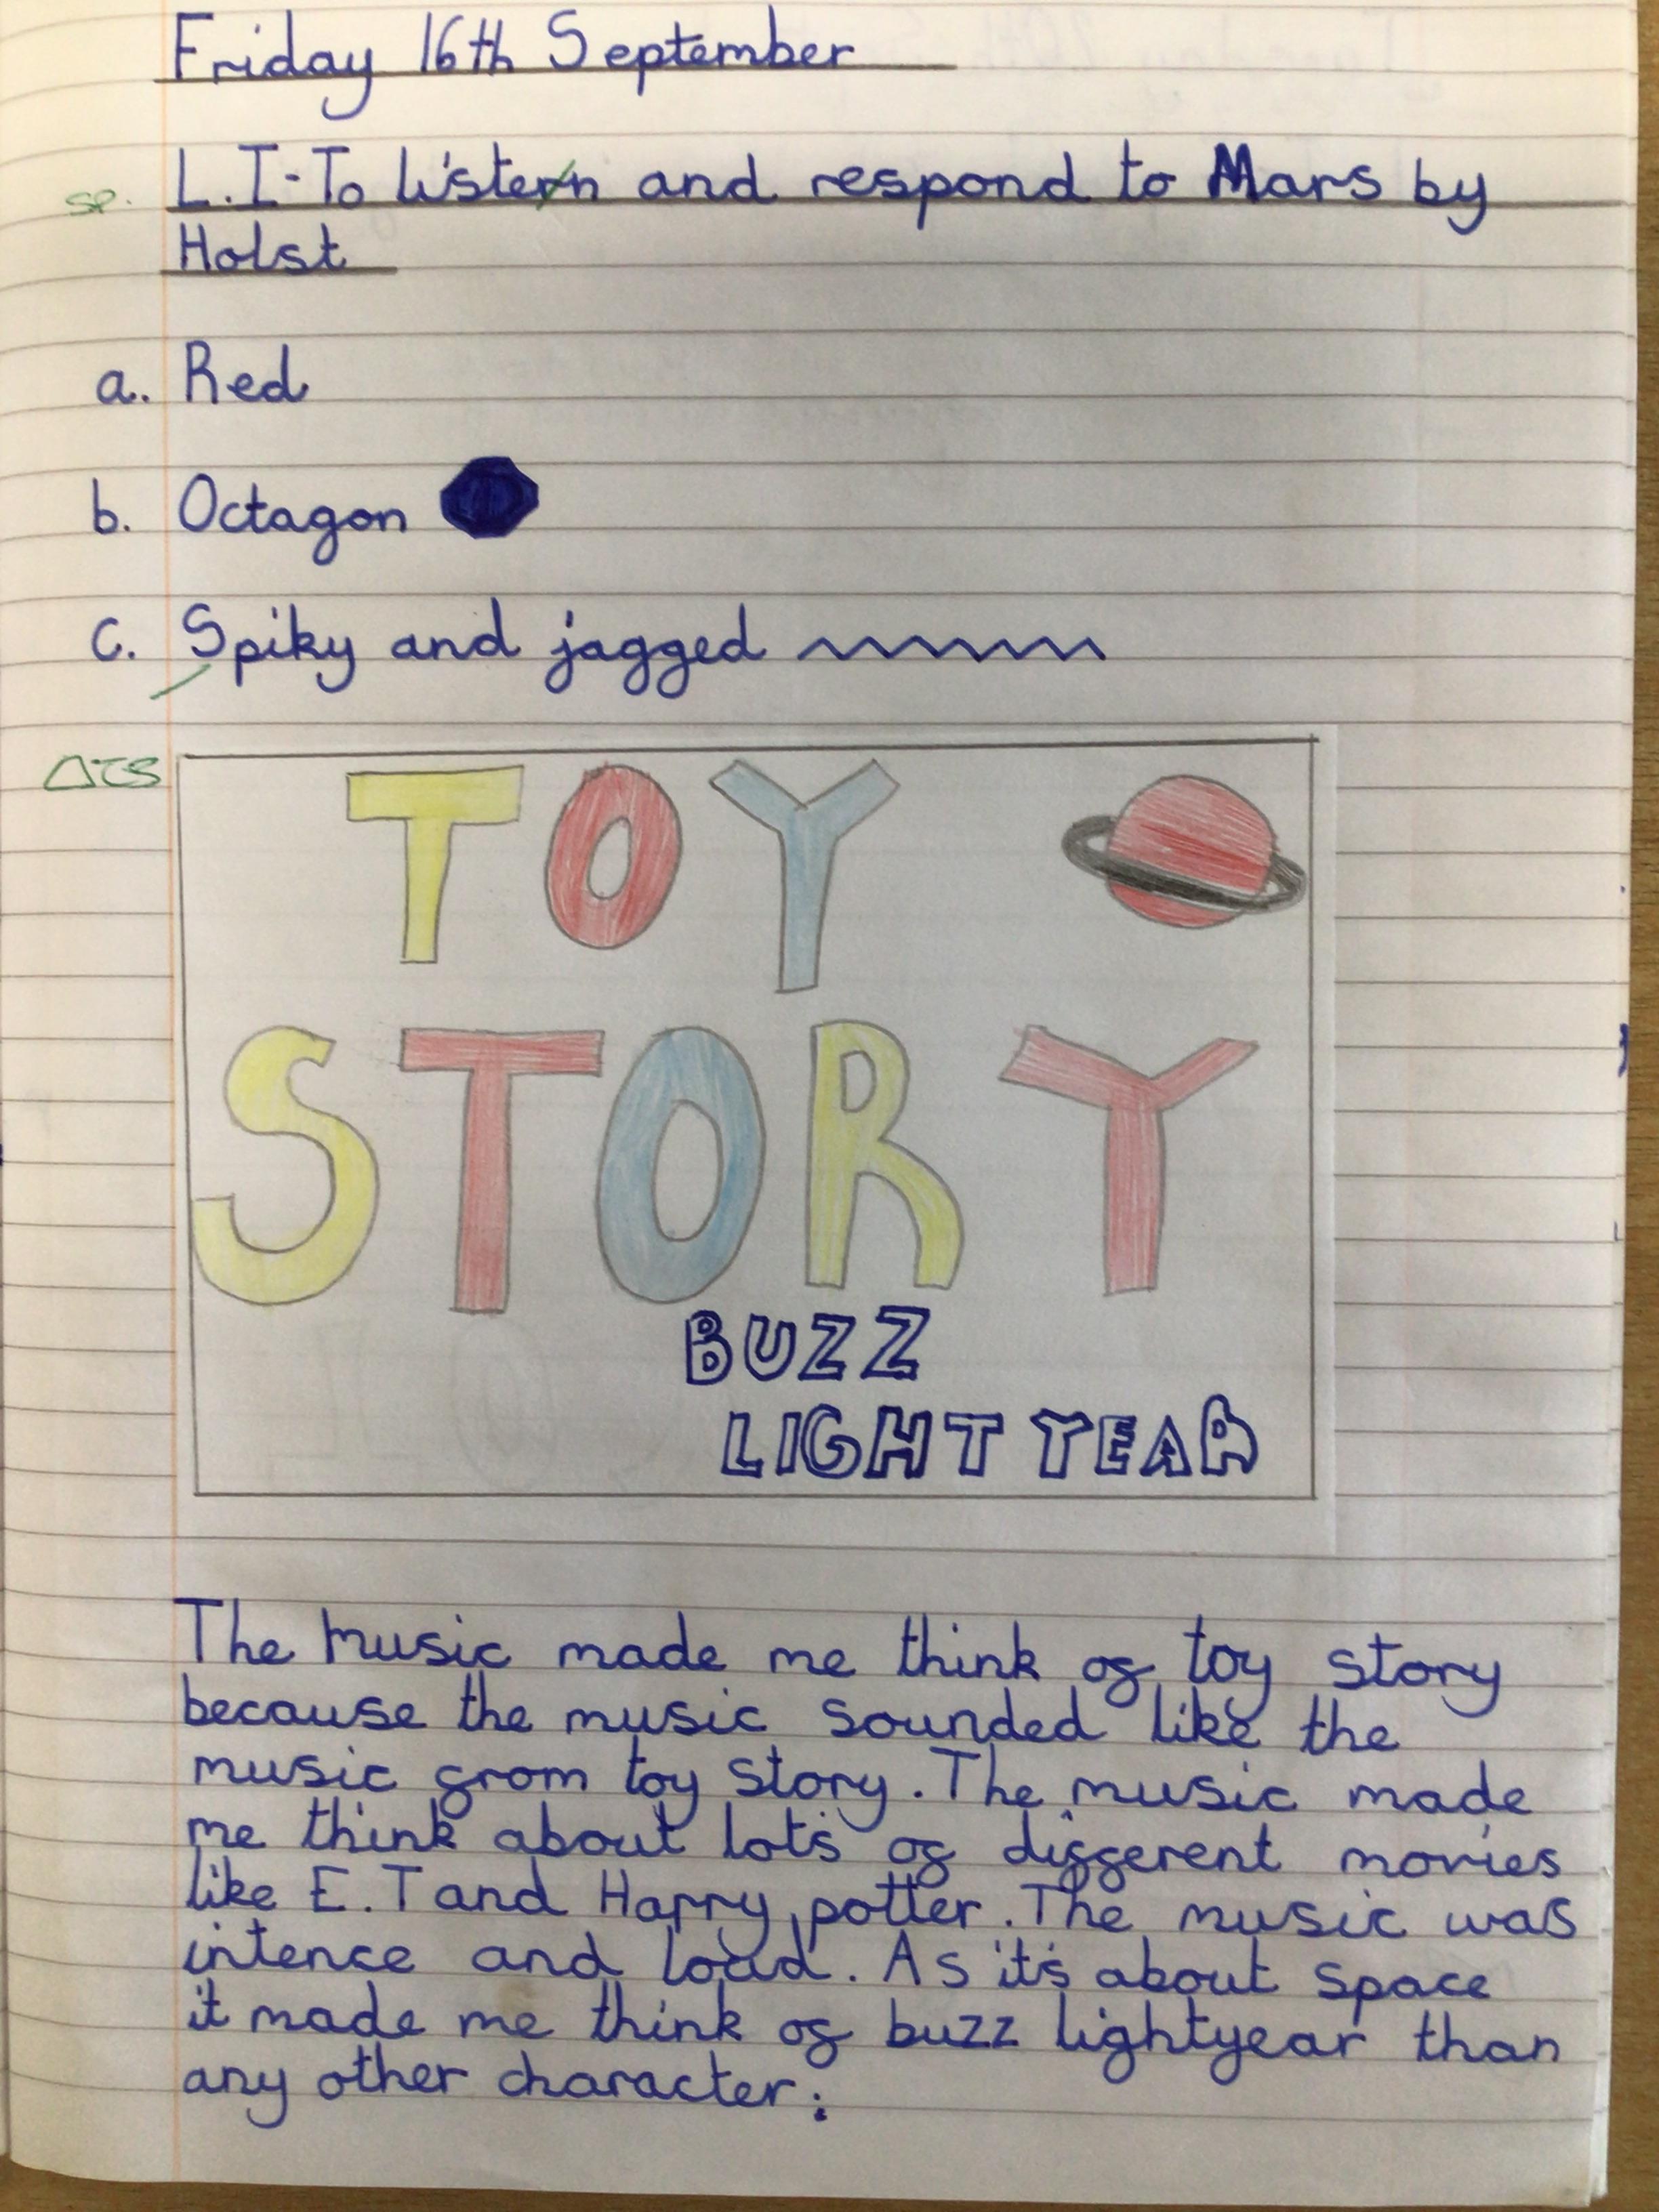 Friday 16th September
sp. L.I-To listern and respond to Mars by
Holst
a. Red
b. Octagon
c. Spiky and jagged
TOY
STORY
BUZZ
LIGHT YEAR
The music made me think of toy story
because the music sounded like the
music from toy story. The music made
me think about lots of different movies
like E.T and Harry potter. The music was
intence and loud. As it's about space
it made me think of buzz lightyear than
any other character.